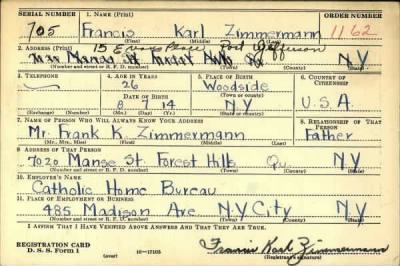 SERIAL NUMBER 1. NAME (Print) ORDER NUMBER
705 Francis Karl Zimmermann 1162
(First) (Middle) (Last)
2. ADDRESS (Print) 15 Place Port Jefferson
Manse St Forest Hills N Y
(Number and street or R. F. D. number) (Town) (County) (State)
3. TELEPHONE 4. AGE IN YEARS 5. PLACE OF BIRTH 6. COUNTRY OF CITIZENSHIP
26 Woodside
DATE OF BIRTH (Town or county)
8 7 14 N Y U.S.A.
(Exchange) (Number) (Mo.) (Day) (Yr.) (State or country)
7. NAME OF PERSON WHO WILL ALWAYS KNOW YOUR ADDRESS 8. RELATIONSHIP OF THAT PERSON
Mr. Frank K. Zimmermann Father
(Mr., Mrs., Miss) (First) (Middle) (Last)
9. ADDRESS OF THAT PERSON
7020 Manse St. Forest Hills Qu. N Y
(Number and street or R. F. D. number) (Town) (County) (State)
10. EMPLOYER'S NAME
Catholic Home Bureau
11. PLACE OF EMPLOYMENT OR BUSINESS
485 Madison Ave N Y City N Y
(Number and street or R. F. D. number) (Town) (County) (State)
I AFFIRM THAT I HAVE VERIFIED ABOVE ANSWERS AND THAT THEY ARE TRUE.
REGISTRATION CARD
D. S. S. Form 1 (over) 16—17105 Francis Karl Zimmermann
(Registrant's signature)